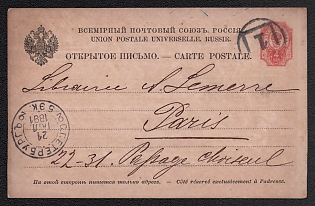 ВСЕМІРНЫЙ ПОЧТОВЫЙ СОЮЗЪ. РОССІЯ.
UNION POSTALE UNIVERSELLE. RUSSIE.
ОТКРЫТОЕ ПИСЬМО. — CARTE POSTALE.
1
Librairie A. Lemerre
Paris
22-31. Passage Choiseul
С.ПЕТЕРБУРГ
21
1881
5 ЭК
На этой сторонѣ пишется только адресъ. — Côté réservé exclusivement à l'adresse.